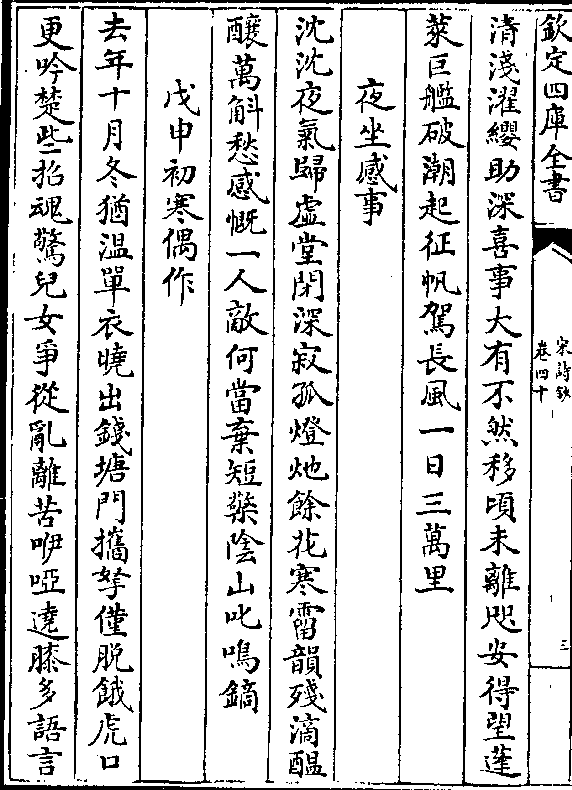 欽定四庫全書
宋詩鈔
卷四十
三
清淺濯纓助深喜事大有不然移頃未離咫安得望蓬
萊巨艦破潮起征帆駕長風一日三萬里
夜坐感事
沈沈夜氣歸虛堂閉深寂孤燈灺餘花寒霤韻殘滴醞
釀萬斛愁感慨一人敵何當棄短檠陰山叱鳴鏑
戊申初寒偶作
去年十月冬猶溫單衣曉出錢塘門攜孥僅脫餓虎口
更吟楚些招魂驚兒女爭從亂離苦咿啞遶膝多語言